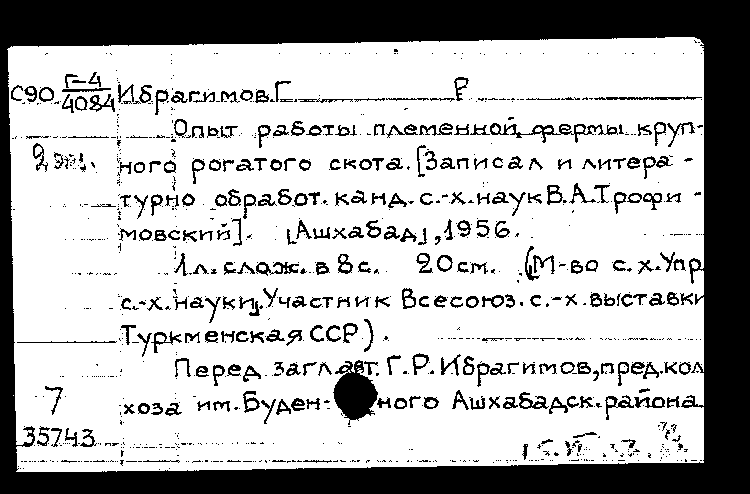 С90 Г-4/4084 Ибрагимов Г Р
Опыт работы племенной фермы круп-
2 экз. ного рогатого скота. [Записал и литера-
турно обработ. канд. с.-х. наук В.А.Трофи-
мовский]. [Ашхабад], 1956.
1 л. слож. в 8 с. 20 см. (М-во с.х. Упр
с.-х. науки. Участник Всесоюз. с.-х. выставки
Туркменская ССР).
Перед загл. авт. Г.Р. Ибрагимов, пред. кол
7 хоза им. Буден- ного Ашхабадск. района
35743